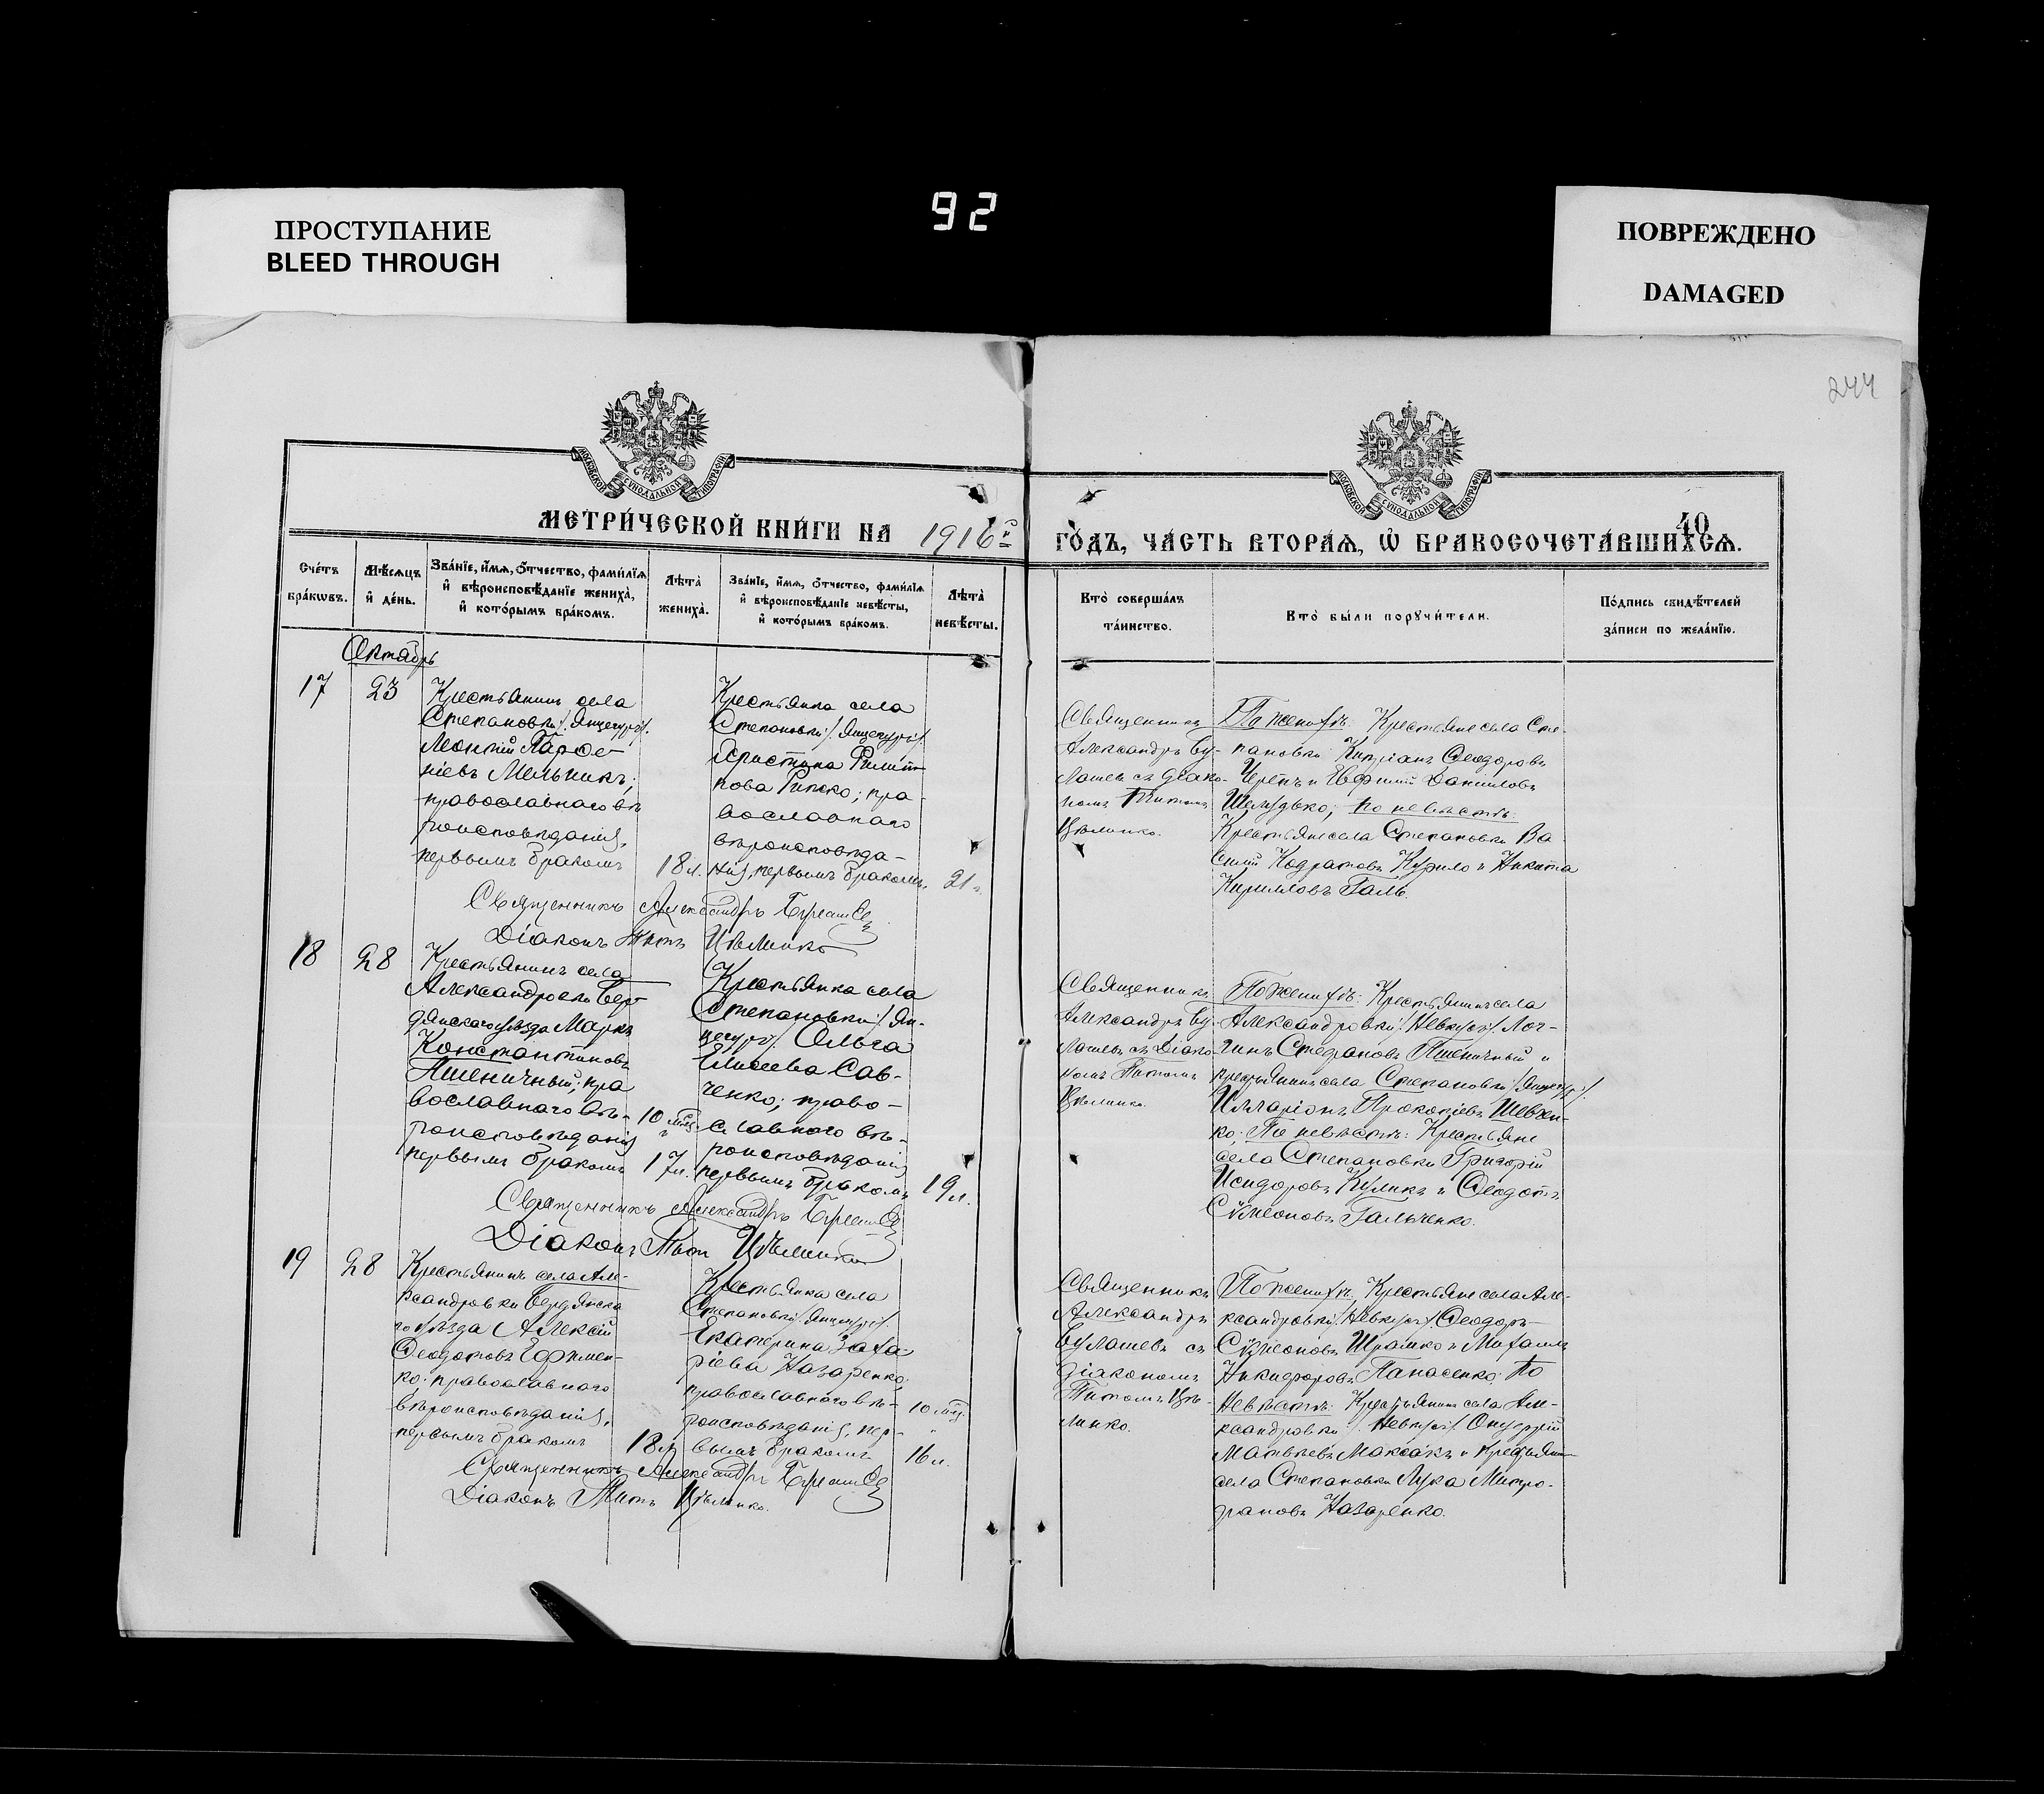 92
ПРОСТУПАНИЕ
BLEED THROUGH
ПОВРЕЖДЕНО
DAMAGED
244
МОСКОВСКОЙ СѴНОДАЛЬНОЙ ТИПОГРАФІИ
МОСКОВСКОЙ СѴНОДАЛЬНОЙ ТИПОГРАФІИ
МЕТРИ́ЧЕСКОЙ КНИ́ГИ НА 1916 г
40
ГО́ДЪ, ЧА́СТЬ ВТОРА́Ѧ, Ѡ҆ БРАКОСОЧЕТА́ВШИХСѦ.
Сче́тъ
бра́кѡвъ.
Мѣ́сѧцъ
и҆ де́нь.
Зва́нїе, и҆́мѧ, ѻ҆́тчество, фами́лїѧ
и҆ вѣроисповѣ́данїе жениха̀,
и҆ кото́рымъ бра́комъ.
Лѣ́та̀
жениха̀.
Зва́нїе, и҆́мѧ, ѻ҆́тчество, фами́лїѧ
и҆ вѣроисповѣ́данїе невѣ́сты,
и҆ кото́рымъ бра́комъ.
Лѣ́та̀
невѣ́сты.
Кто̀ соверша́лъ
та́инство.
Кто̀ бы́ли порꙋчи́тели.
По́дпись свидѣ́телей
за́писи по жела́нїю.
Октябрь
17
23
Крестьянинъ села
Степановки /.Янцегуръ/.
Леонтий Парѳе-
ніевъ Мельникъ;
православнаго вѣ
роисповѣданія,
первымъ бракомъ
18 л.
Крестьянка села
Степановки /.Янцегуръ/.
Христина Филип-
пова Рипко; пра-
вославнаго
вѣроисповѣда-
нія, первымъ бракомъ.
21 г.
Священникъ
Александръ Бу-
лашевъ съ діако-
номъ Титомъ
Цѣлинко.
По женихѣ: Крестьяне села Сте-
пановки Кипріанъ Ѳеодоровъ
Черепъ и Евфимій Даниловъ
Шелудько; по невѣстѣ:
Крестьяне села Степановки Ва-
силій Кодратовъ Курило и Никита
Кирилловъ Галь.
Священникъ Александръ Булашевъ
Діаконъ Титъ Цѣлинко
18
28
Крестьянинъ села
Александровки Бер-
дянскаго уѣзда Маркъ
Константиновъ
Пшеничный; пра
вославнаго вѣ-
роисповѣданія
первымъ бракомъ
10 мѣс.
17 л.
Крестьянка села
Степановки /.Ян-
цегуръ/. Ольга
Елисеева Сав-
ченко; право-
славнаго вѣ-
роисповѣданія
первымъ бракомъ
19 л.
Священникъ
Александръ Бу-
лашевъ съ Діако-
номъ Титомъ
Цѣлинко.
По женихѣ: Крестьянинъ села
Александровки /.Невкусъ/. Лог-
гинъ Стефановъ Пшеничный и
крестьянинъ села Степановки /.Янцегуръ/.
Илларіонъ Прокопіевъ Шевчен-
ко; По невѣстѣ: Крестьяне
села Степановки Григорій
Исидоровъ Куликъ и Ѳеодотъ
Сѵмеоновъ Гальченко.
Священникъ Александръ Булашевъ
Діаконъ Титъ Цѣлинко
19
28
Крестьянинъ села Але-
ксандровки Бердянска
го уѣзда Алексій
Ѳеодотовъ Ефимен-
ко: православнаго
вѣроисповѣданія,
первымъ бракомъ
18 л.
Крестьянка села
Степановки /.Янцегуръ/.
Екатерина Заха-
ріева Назаренко;
православнаго вѣ-
роисповѣданія, пер-
вымъ бракомъ
10 мѣс.
16 л.
Священникъ
Александръ
Булашевъ съ
діакономъ
Титомъ Цѣ-
линко.
По женихѣ, Крестьяне села Але-
ксандровки /.Невкусъ/. Ѳеодоръ
Сѵмеоновъ Шрамко и Михаилъ
Никифоровъ Панасенко; По
Невѣстѣ: Крестьянинъ села Але-
ксандровки /.Невкусъ/. Онуфрій
Матвѣевъ Максакъ и крестьянинъ
села Степановки Лука Митро-
фановъ Назаренко.
Священникъ Александръ Булашевъ
Діаконъ Титъ Цѣлинко.